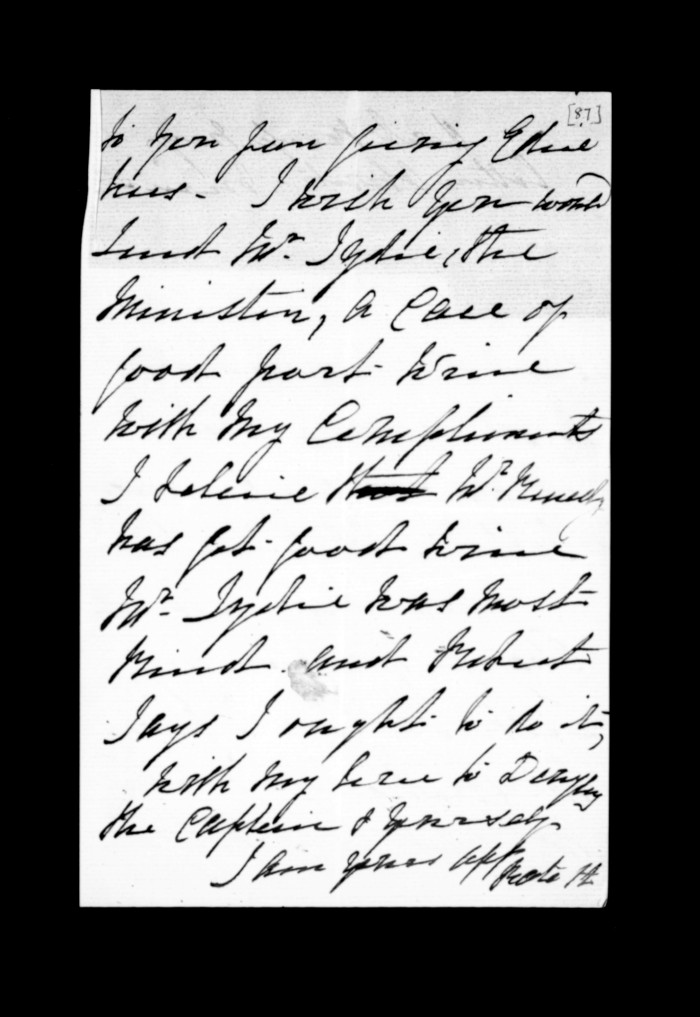 [87]
to you for giving Edie
has - I wish you would
send Mr. Sydie, the
Minister, a Case of
good port wine
with my Compliments
I believe that Mr.
has got good wine
Mr. Sydie was most
kind and Robert
says I ought to do it,
with my love to
the Captain & yourself
I am yours aff
Kate H